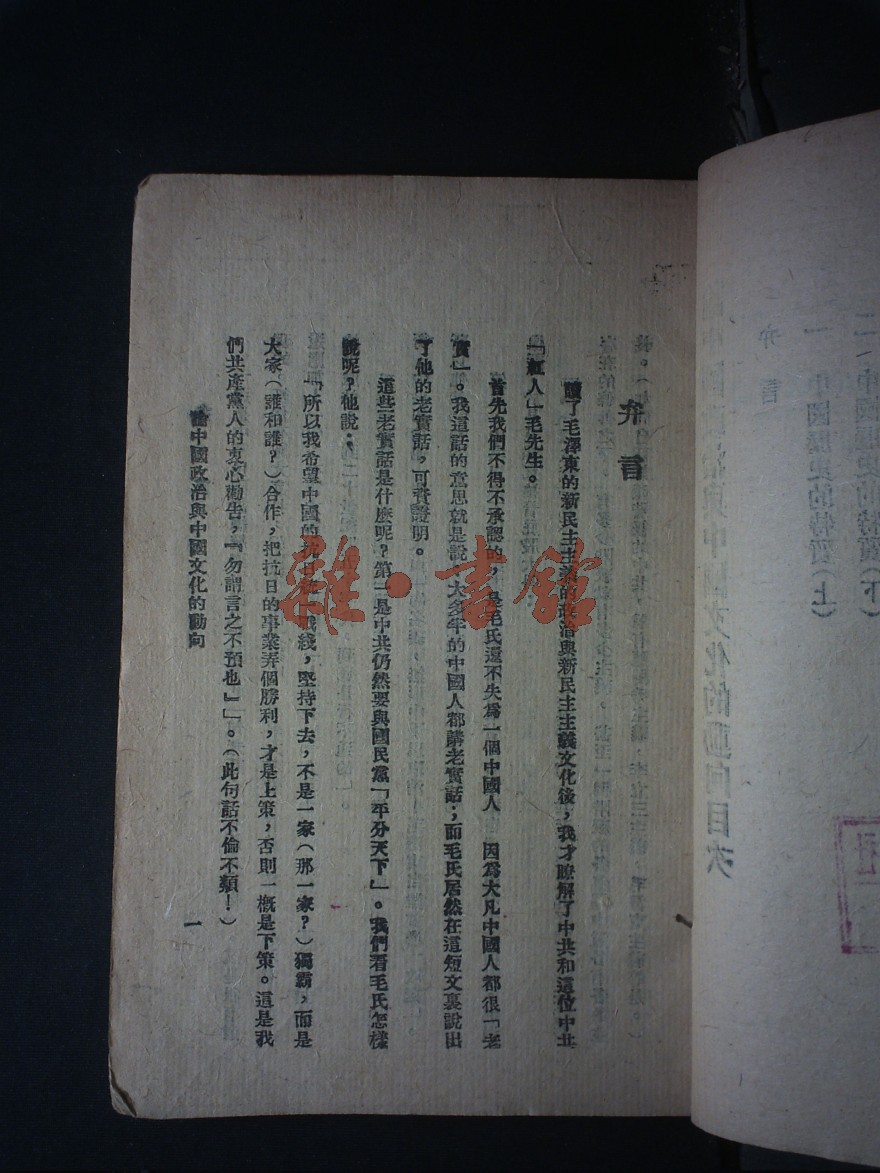 弁言
讀了毛澤東的新民主主義的政治與新民主主義文化後，我才瞭解了中共和這位中共
「紅人」毛先生。
首先我們不得不承認的，是毛氏還不失為一個中國人 因為大凡中國人都很「老
實」。我這話的意思就是說，大多半的中國人都講老實話；而毛氏居然在這短文裏說出
了他的老實話，可資證明。
這些老實話是什麼呢？第一是中共仍然要與國民黨「平分天下」。我們看毛氏怎樣
說呢？他說：
「所以我希望中國的抗日統一戰綫，堅持下去，不是一家（那一家？）獨霸，而是
大家（誰和誰？）合作，把抗日的事業弄個勝利，才是上策，否則一概是下策。這是我
們共產黨人的衷心勸告，『勿謂言之不預也』」。（此句話不倫不類！）
論中國政治與中國文化的動向
一
雜·書館